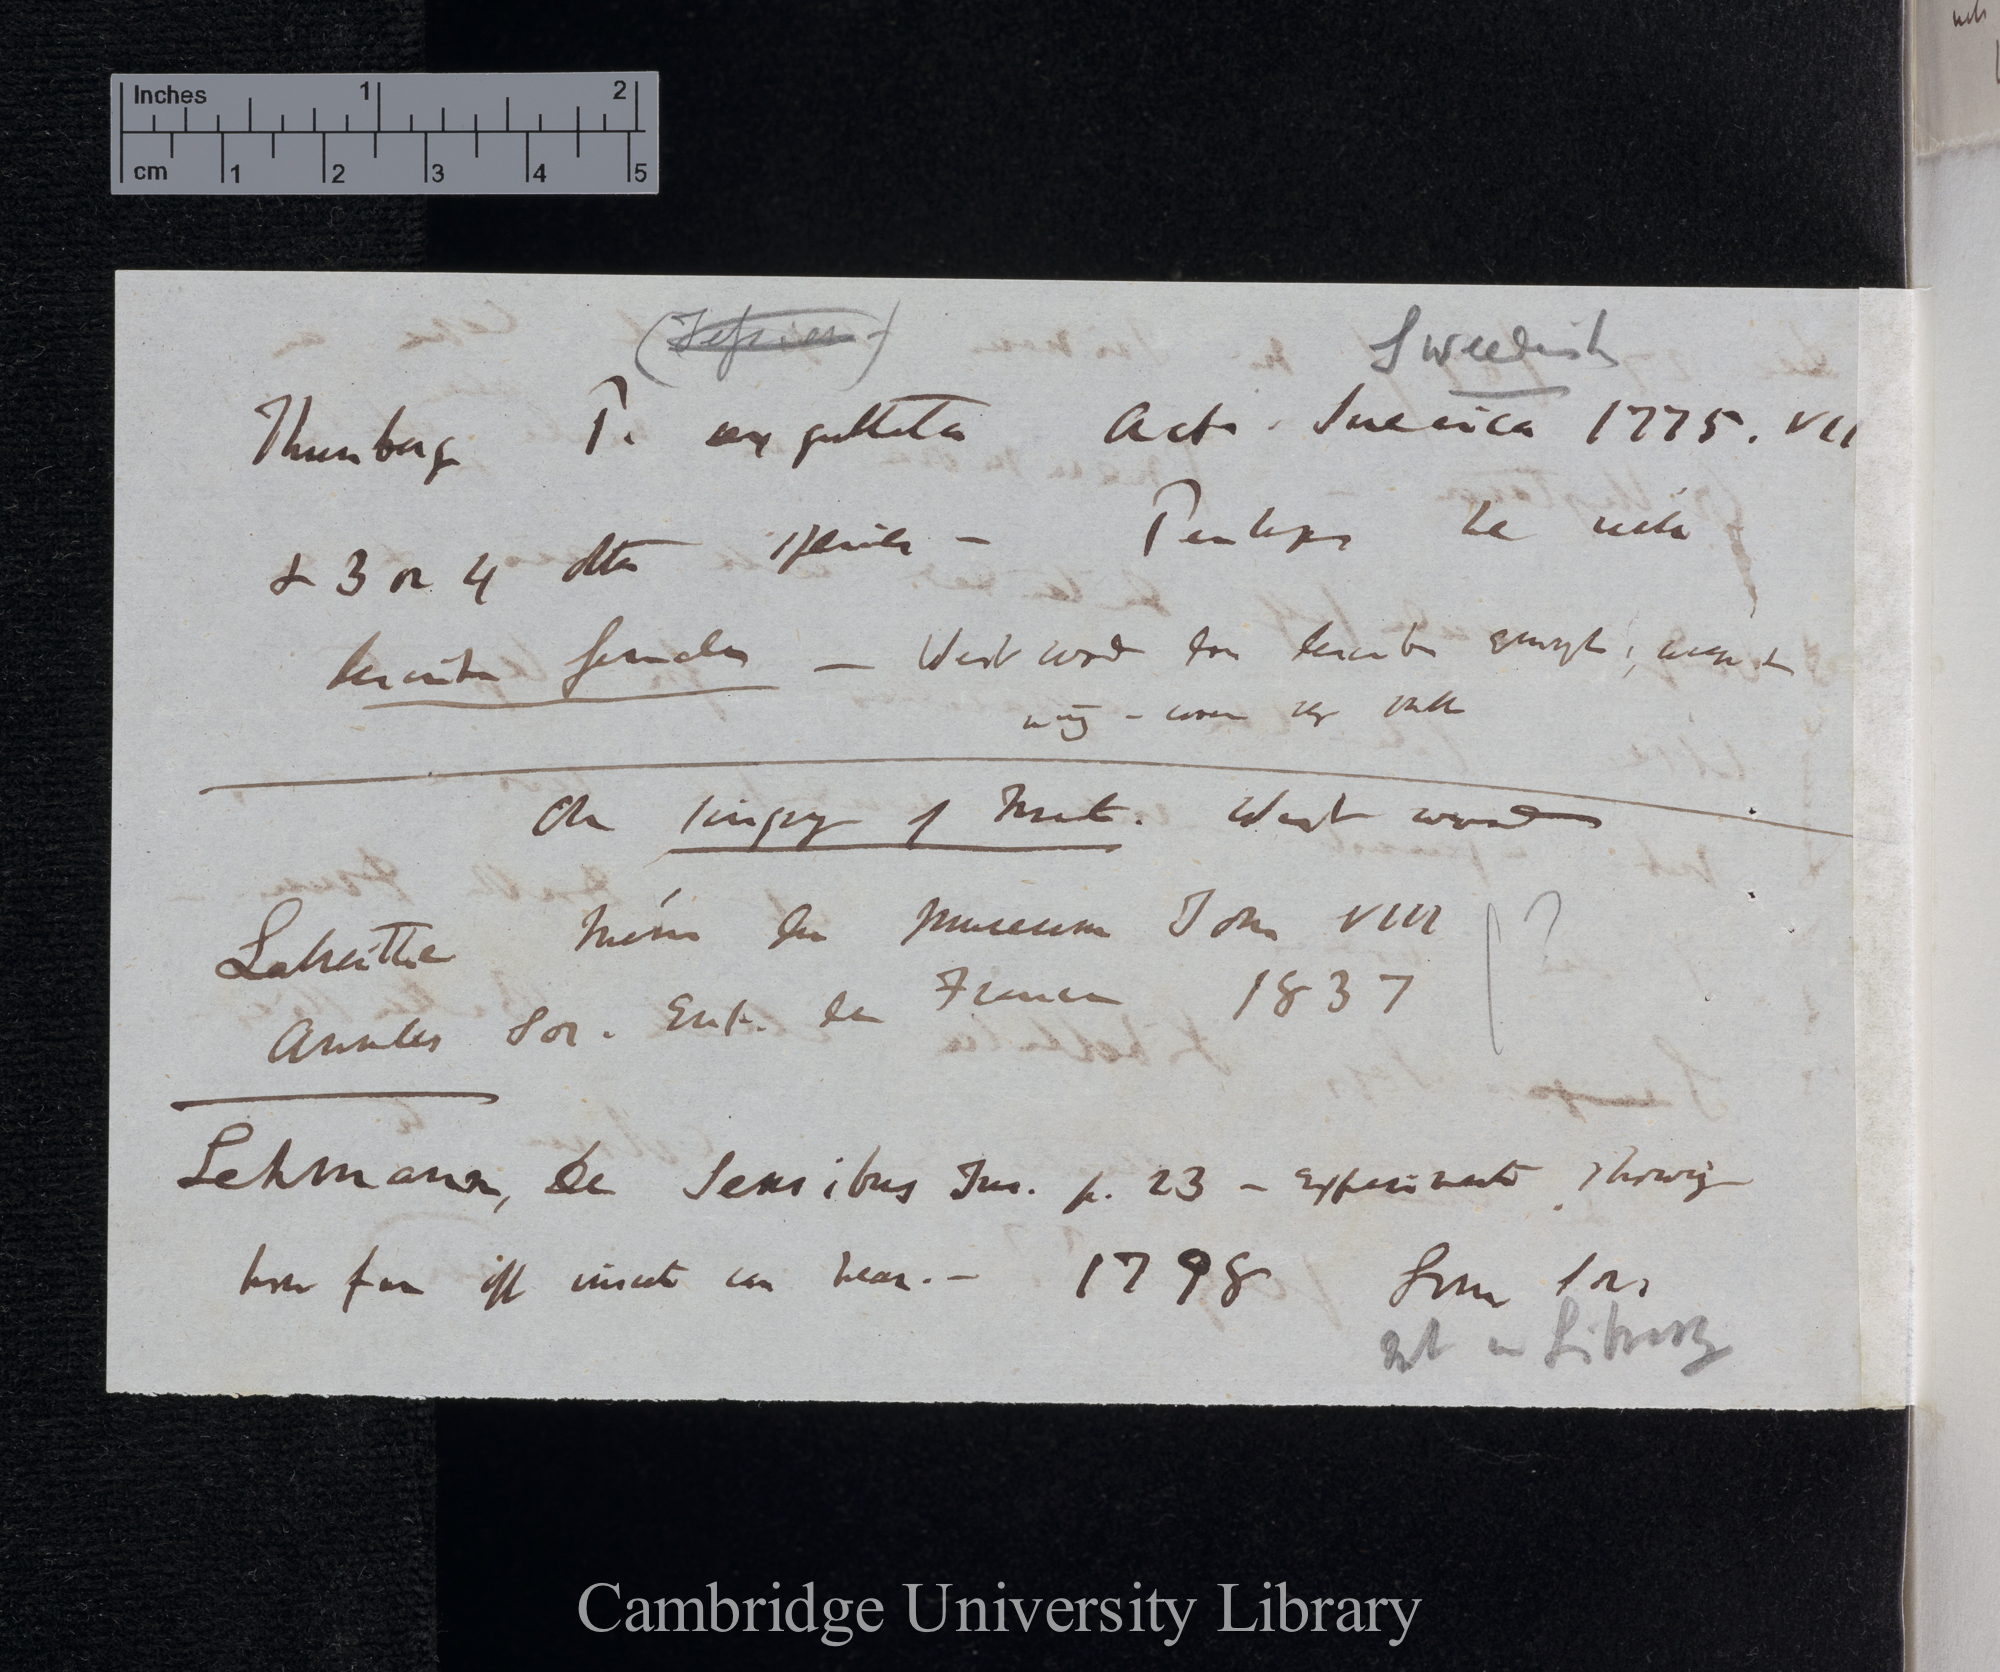 Inches 1 2
cm 1 2 3 4 5
Swedish
Thunberg P. guttata Acta. Suecica 1775. VII
& 3 or 4 other species — Perhaps he only
describes females — Westwood has described enough,
wing –
On singing of Insects. Westwood
Labreille Mém du Museum Tom VIII ?
Annales Soc. Ent. de France 1837
Lehmann, de Sensibus Ins. p. 23 – experiments showing
how far off insects can hear. – 1798 Linn Soc
Not in Library
Cambridge University Library